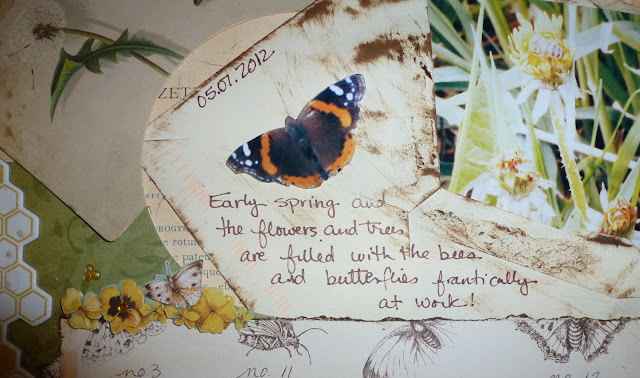 05.07.2012
Early spring and
the flowers and trees
are filled with the bees
and butterflies frantically
at work!
no 3
no. 11
no. 12